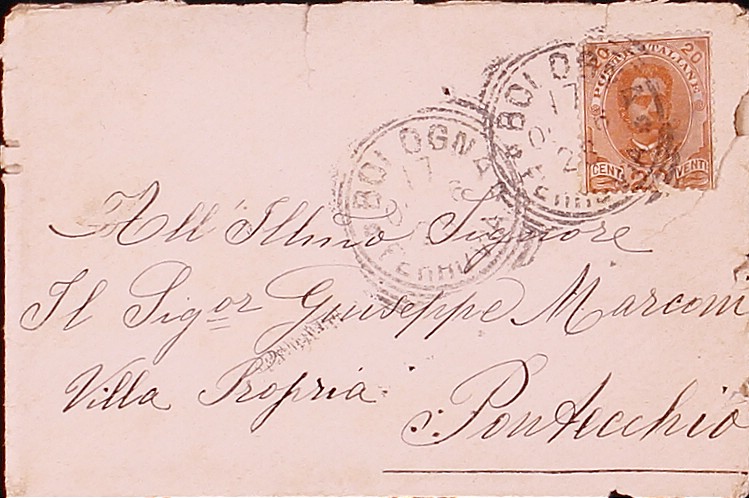 20
POSTE ITALIANE
CENT VENTI
BOLOGNA
17
FERROVIA
BOLOGNA
17
FERROVIA
All' Illmo Signore
Il Sigor Giuseppe Marconi
Villa Propria
Pontecchio